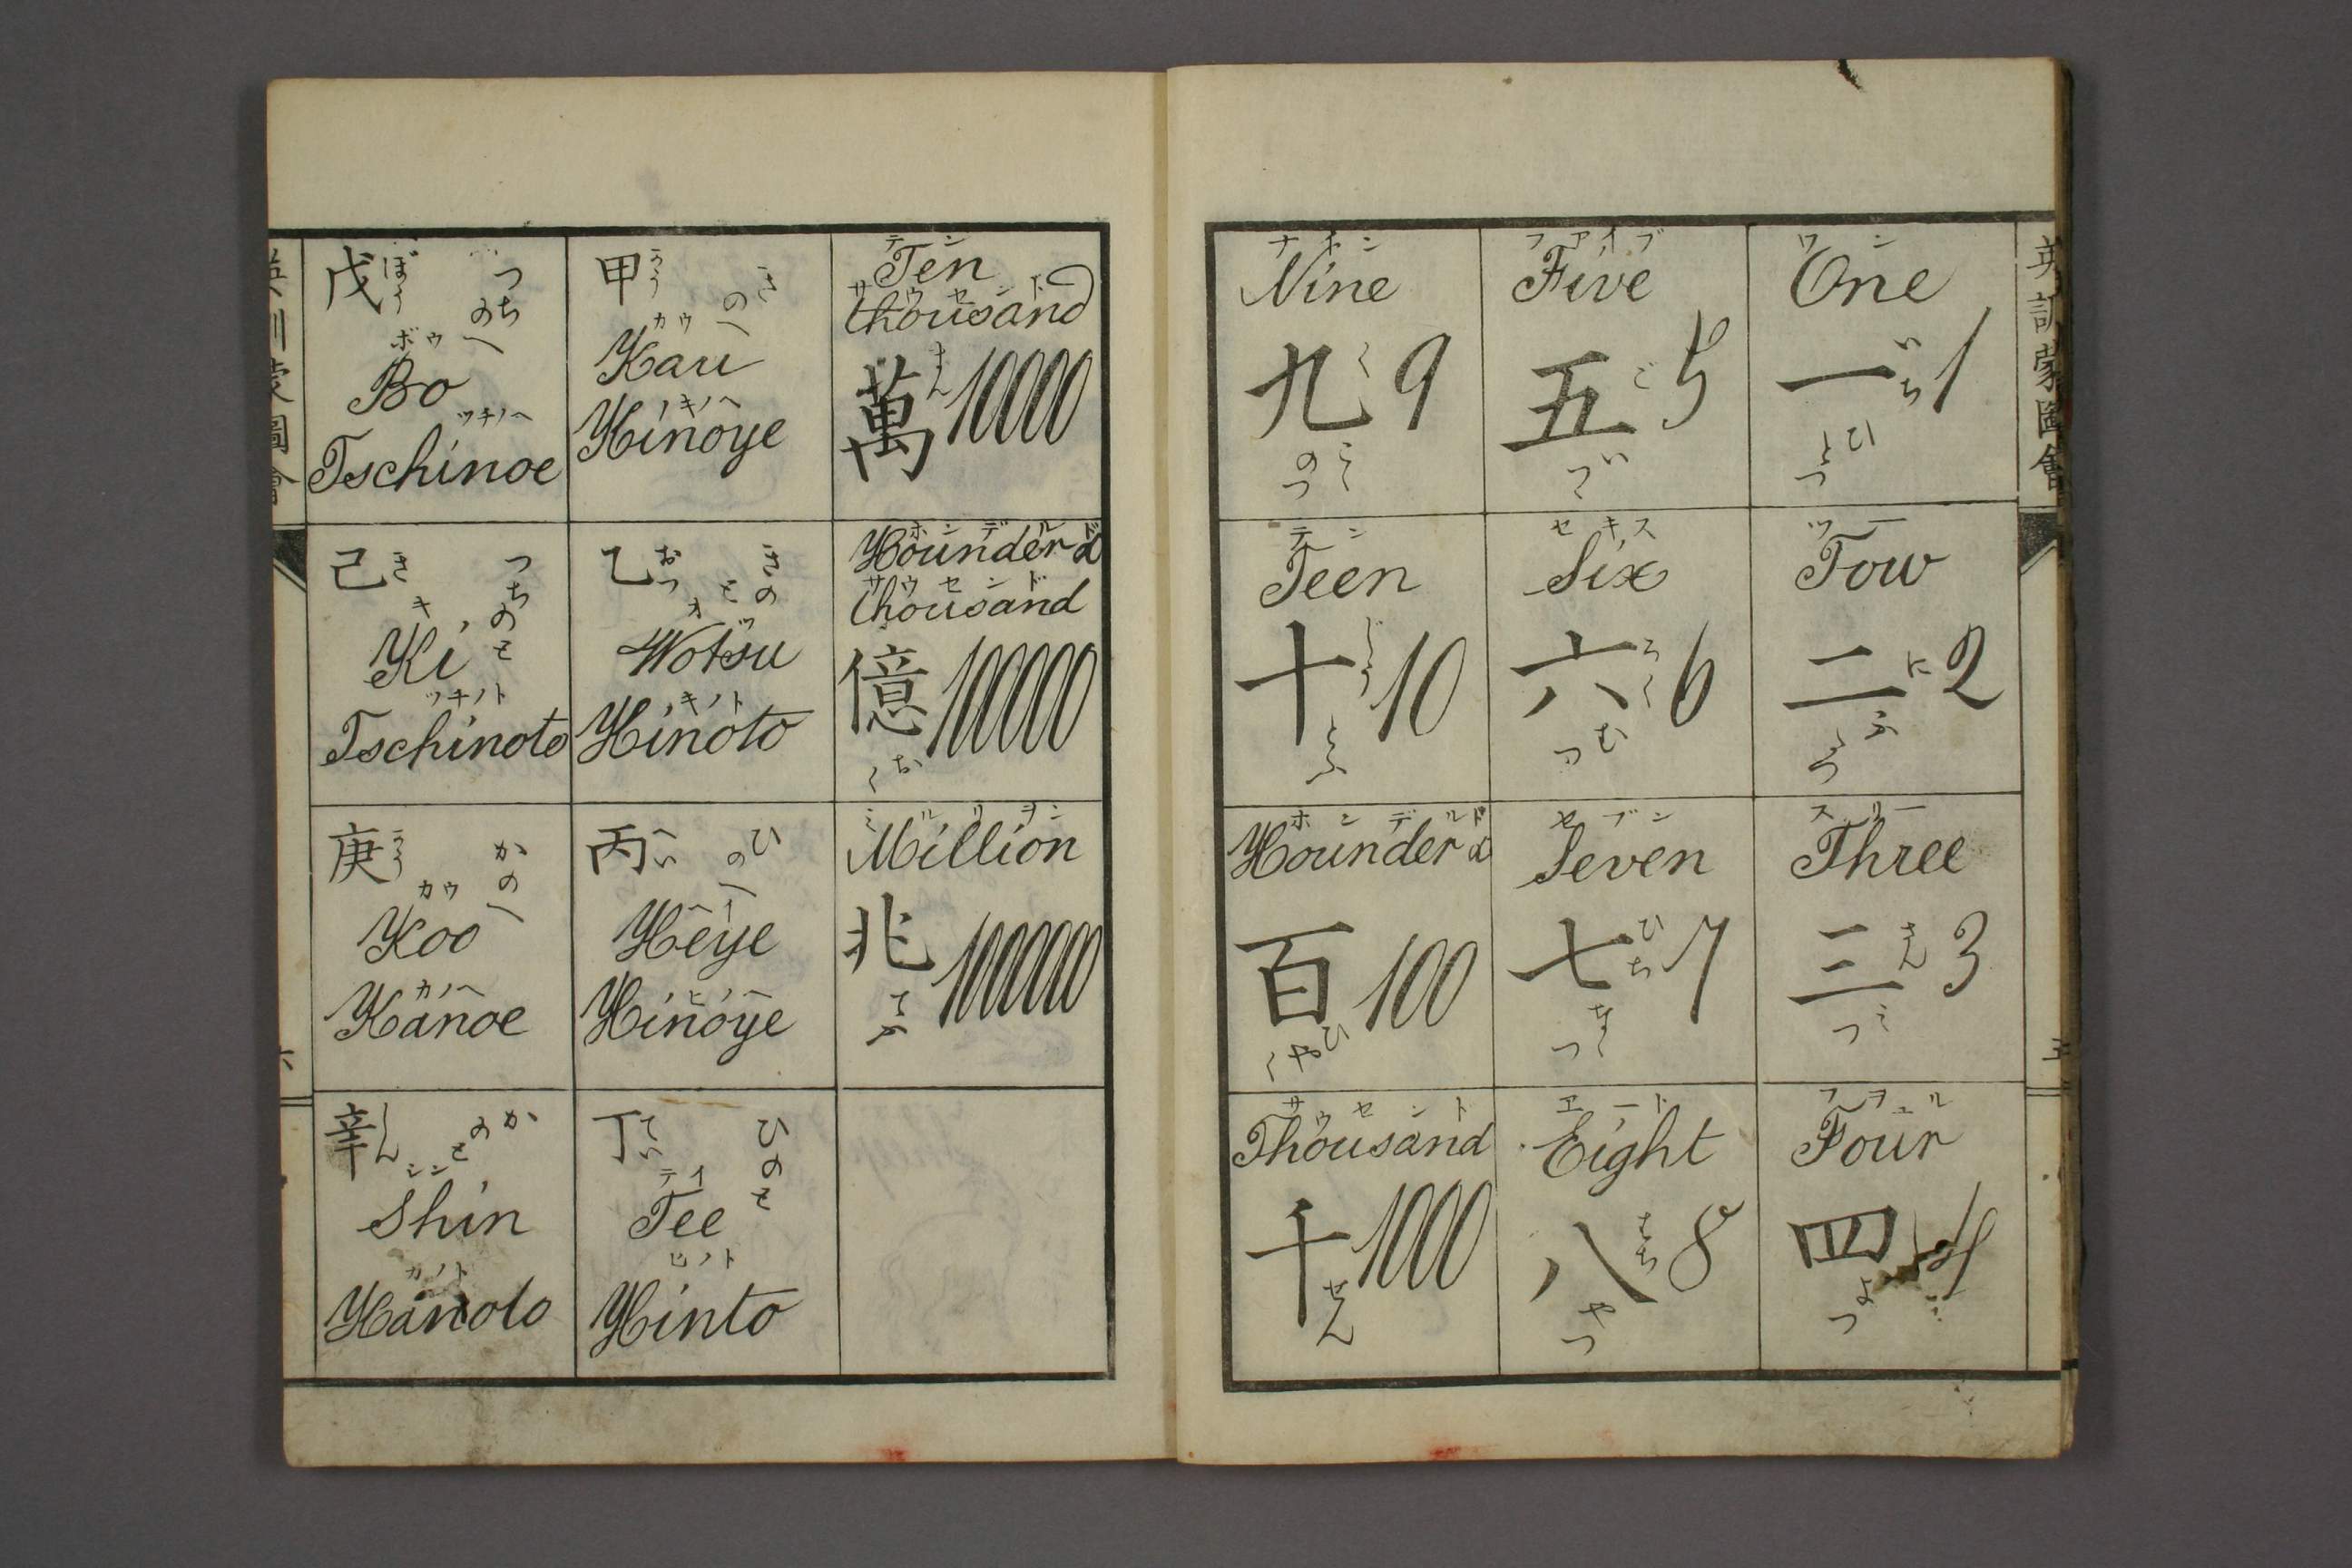 英訓蒙圖會
五
ワン
One
一 いち 1
ひとつ
ツー
Tow
二 に 2
ふたつ
スリー
Three
三 さん 3
みつ
フヲユル
Four
四 4
よつ
ファイブ
Five
五 ご 5
いつゝ
セキス
Six
六 ろく 6
むつ
セブン
Seven
七 ひち 7
なゝつ
エート
Eight
八 はち 8
やつ
ナイン
Nine
九 く 9
こゝのつ
テン
Teen
十 じう 10
とふ
ホンデルド
Hounderd
百 100
ひやく
サウセント
Thousand
千 1000
せん
テン
Ten
サウセンド
thousand
萬 まん 10000
ホンデルド
Hounderd
サウセンド
thousand
億 100000
おく
ミルリヲン
Million
兆 1000000
てふ
甲 かう きのへ
カウ
Kau
キノヘ
Hinoye
乙 おつ きのと
オツ
Wotsu
キノト
Hinoto
丙 へい ひのへ
ヘイ
Heye
ヒノヘ
Hinoye
丁 てい ひのと
テイ
Tee
ヒノト
Hinto
戊 ぼう つちのへ
ボウ
Bo
ツチノヘ
Tschinoe
己 き つちのと
キ
Ki
ツチノト
Tschinoto
庚 かう かのへ
カウ
Koo
カノヘ
Kanoe
辛 しん かのと
シン
Shin
カノト
Kanoto
英訓蒙圖會
六